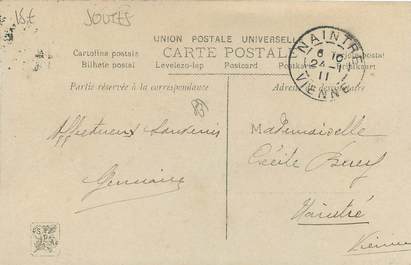 15€ JOUTES
UNION POSTALE UNIVERSELLE
CARTE POSTALE
Cartolina postale
Bilhete postal Levelezo-lap Postcard Postkarte
Partie réservée à la correspondance
NAINTRÉ
6
24
11
VIENNE
Affectueux Souvenirs
Germaine
Mademoiselle
Cécile
Naintré
Vienne